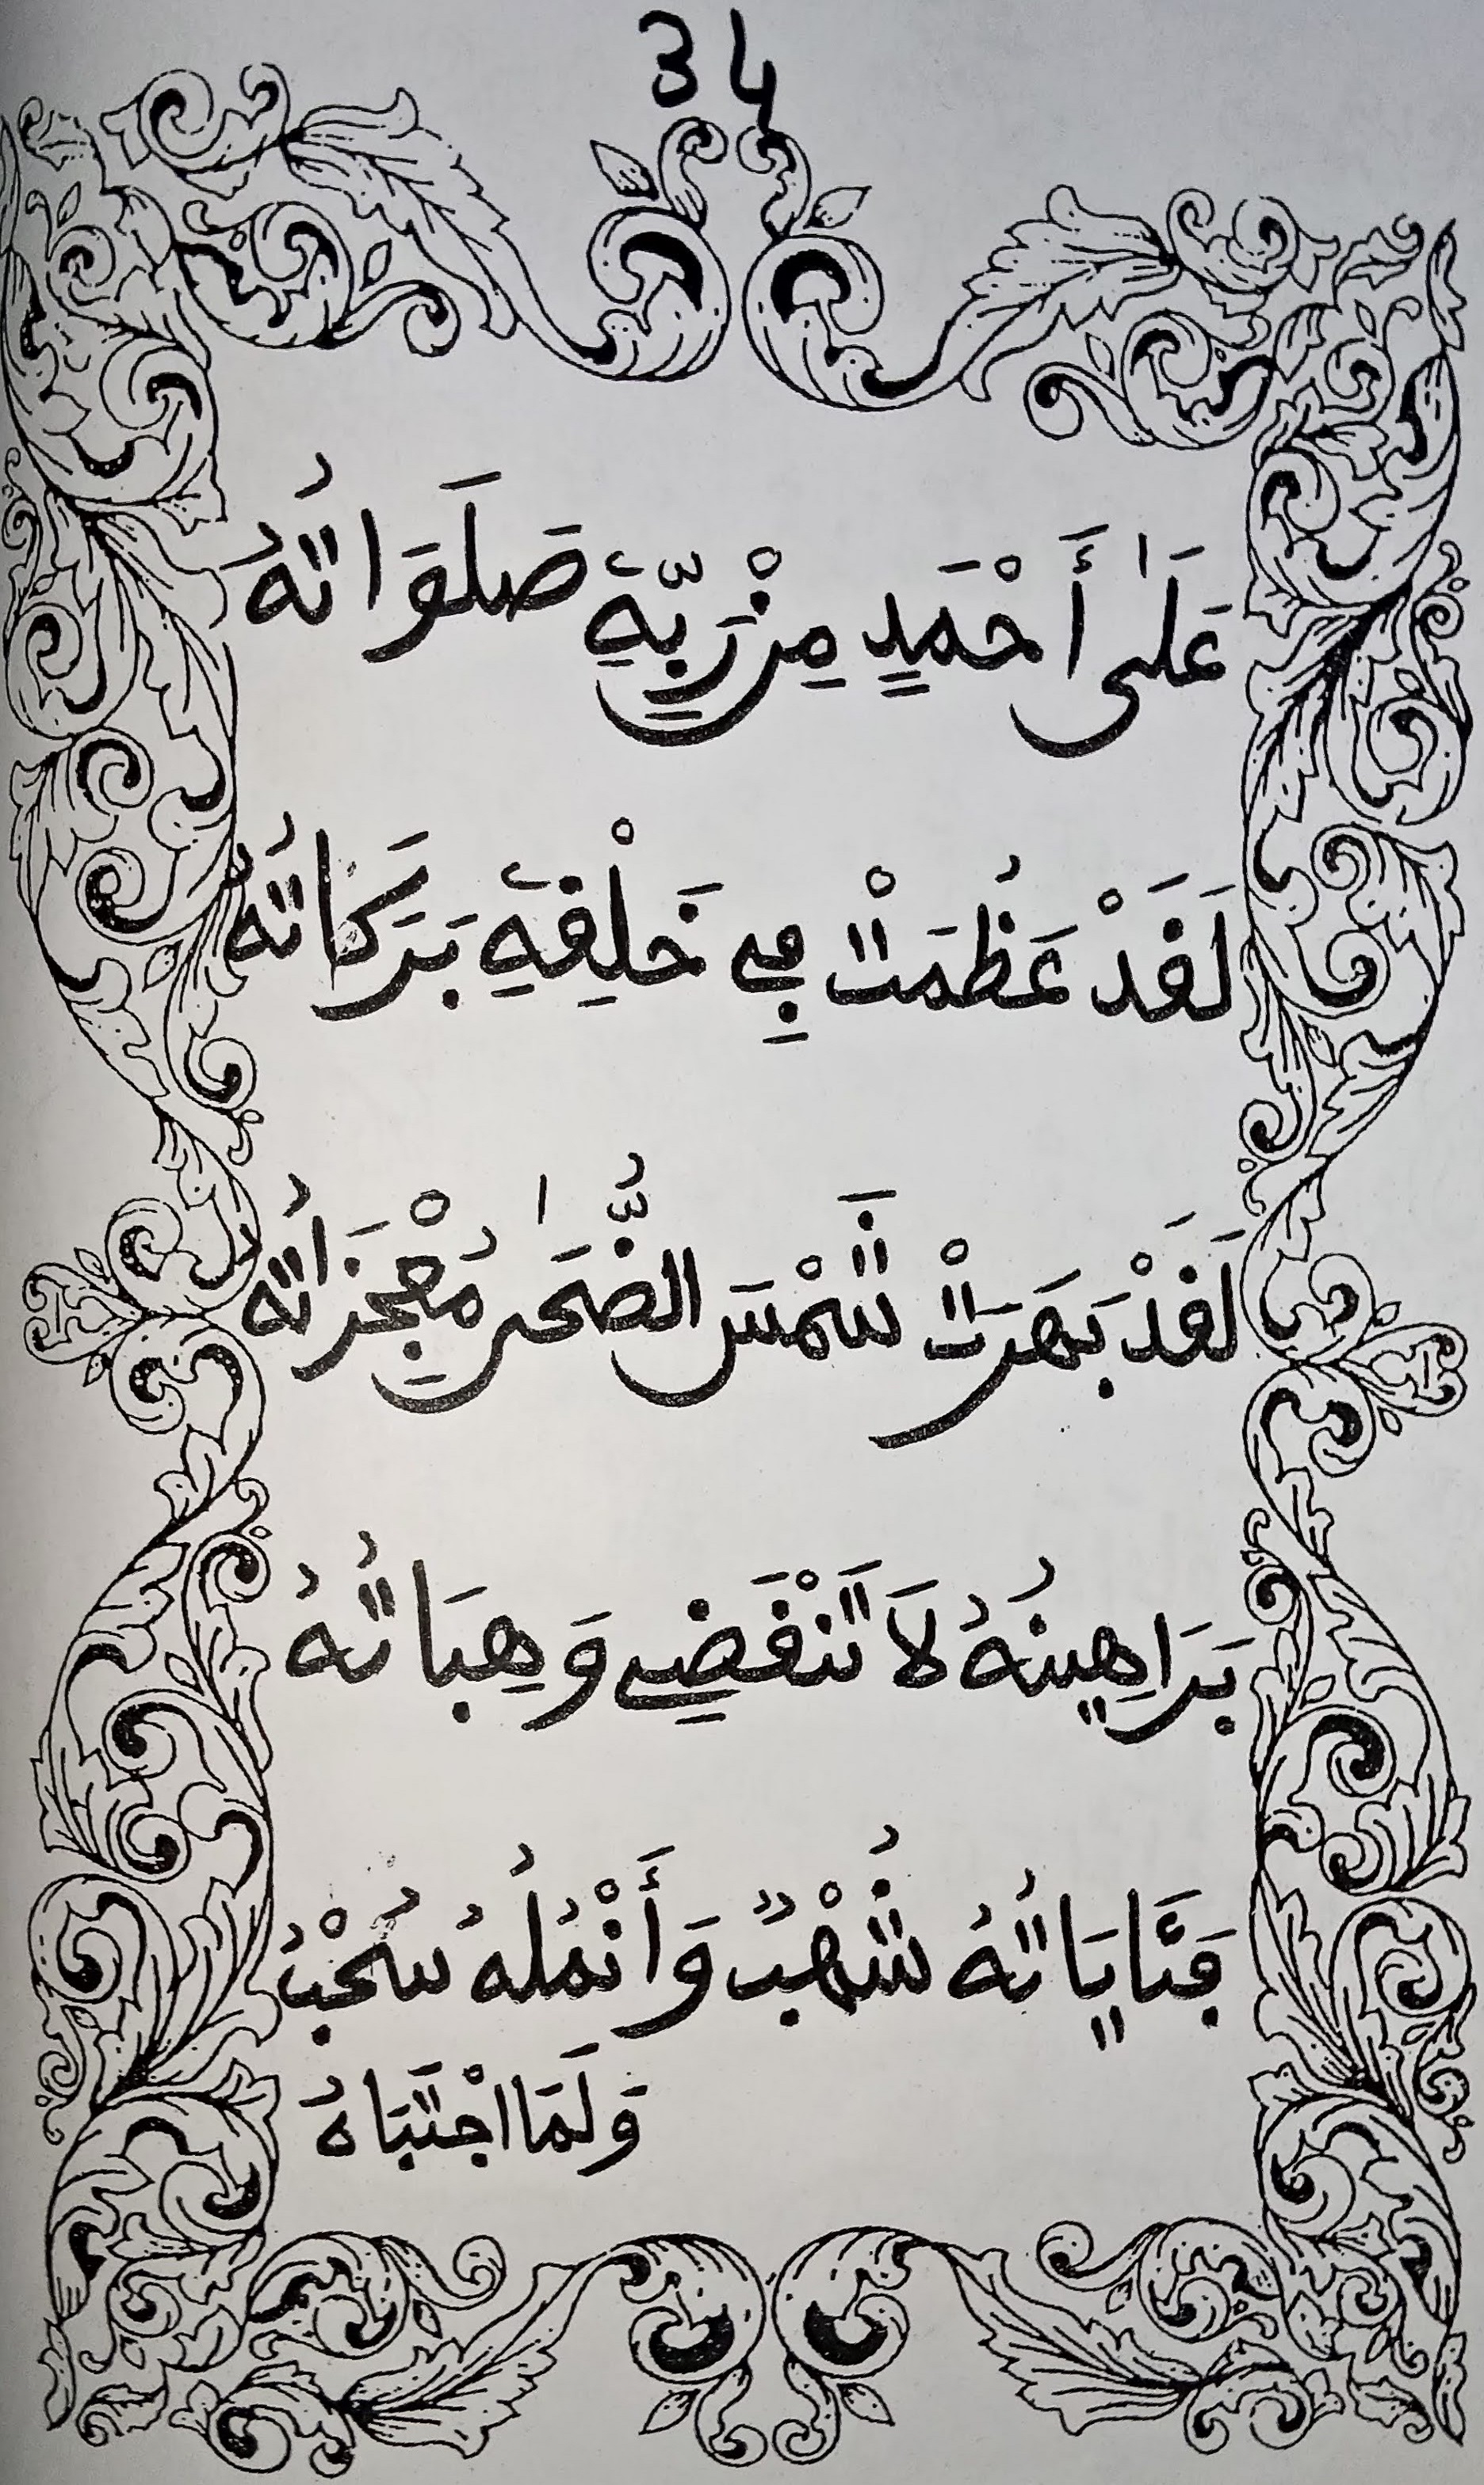 34
عَلَىٰ أَحْمَدٍ مِنْ رَبِّهِ صَلَوَاتُهُ
لَقَدْ عَظُمَتْ فِي خَلْقِهِ بَرَكَاتُهُ
لَقَدْ بَهَرَتْ شَمْسَ الضُّحَىٰ مُعْجِزَاتُهُ
بَرَاهِينُهُ لَا تَنْقَضِي وَهِبَاتُهُ
فَئَايَاتُهُ شُهْبٌ وَأَنْمُلُهُ سُحْبُ
وَلَمَا اجْتَبَاهُ